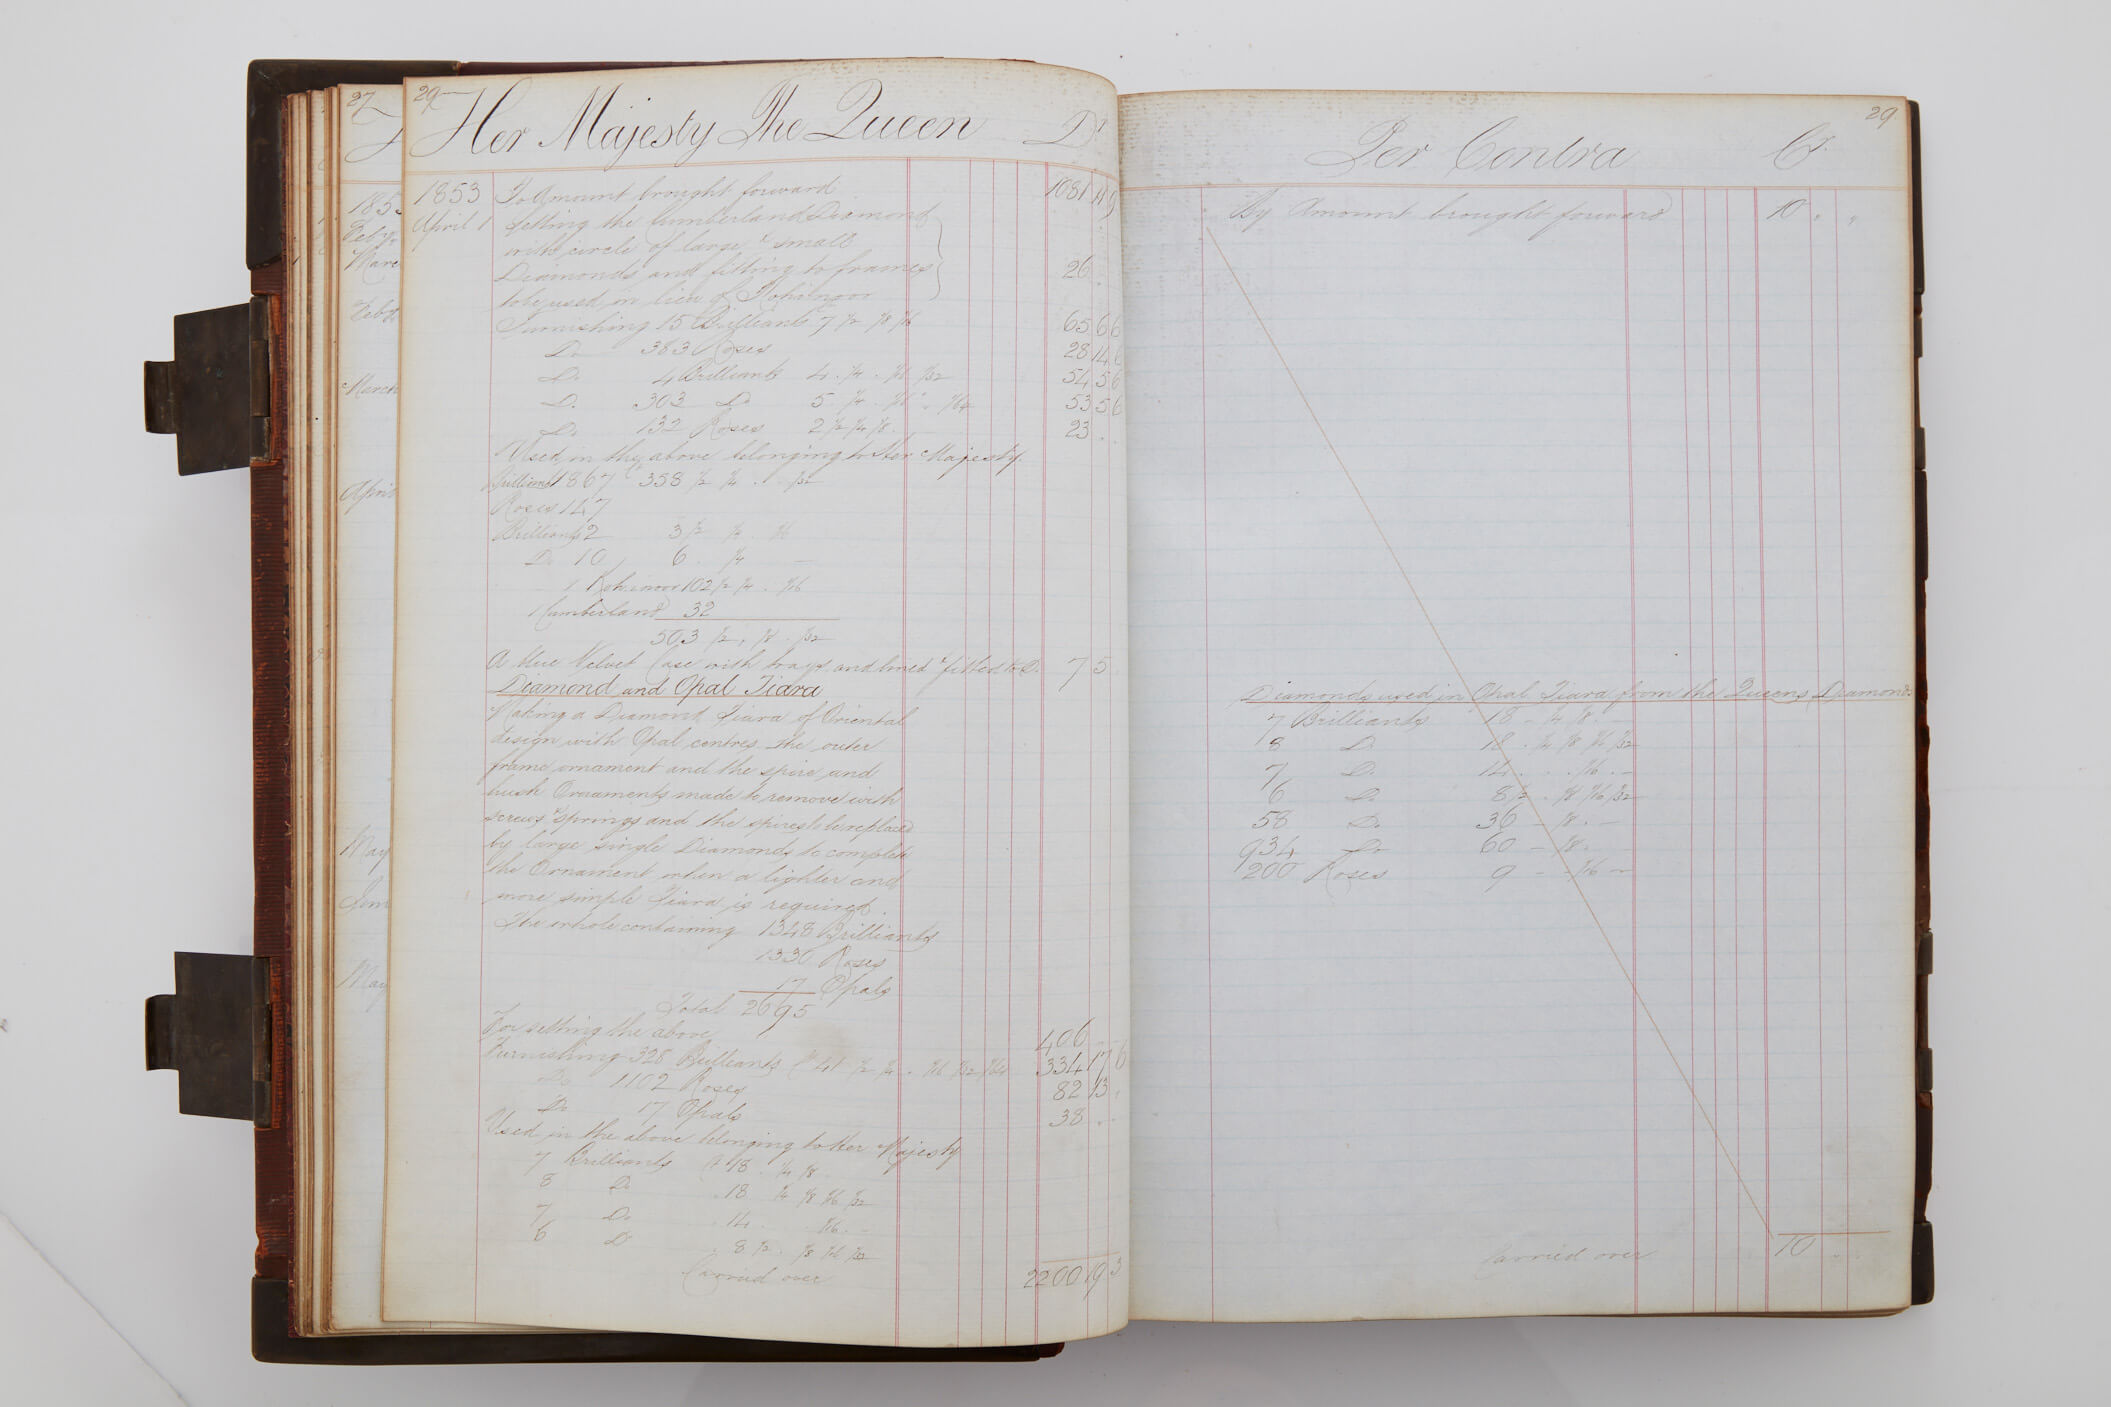 27
1853
Feby
March
Feby
March
April
May
May
29
Her Majesty The Queen Dr
1853 To Amount brought forward 1081 14 9
April 1 Setting the Cumberland Diamond
with circle of large & small
Diamonds and fitting to frames 26 . .
to be used in lieu of Kohinoor
Furnishing 15 Brilliants 7 1/2 1/8 1/16 65 6 6
Do 383 Roses 28 14 6
Do 4 Brilliants 4 . 1/4 . 1/16 1/32 54 5 6
Do 303 Do 5 . 1/4 . 1/16 . 1/64 53 5 6
Do 132 Roses 2 1/2 1/4 1/8 23 . .
Used in the above belonging to Her Majesty.
Brilliants 1867 Ct 358 1/2 1/4 . . 1/32
Roses 147
Brilliants 2 3 1/2 1/8 . 1/16
Do 10 6 . 1/4
1 Kohinoor 102 1/2 1/4 . 1/16
1 Cumberland 32
503 1/2 , 1/8 . 1/32
A blue Velvet Case with trays and lined & fitted to Do 7 5 .
Diamond and Opal Tiara
Making a Diamond Tiara of Oriental
design with Opal centres the outer
frame ornament and the spire and
bush Ornaments made to remove with
screws & springs and the spires to be replaced
by large single Diamonds to complete
the Ornament when a lighter and
more simple Tiara is required.
The whole containing 1348 Brilliants
1330 Roses
17 Opals
Total 2695
For setting the above 406
Furnishing 328 Brilliants Ct 41 1/2 1/4 . 1/16 1/32 1/64 334 17 6
Do 1102 Roses 82 13 .
Do 17 Opals 38 . .
Used in the above belonging to Her Majesty
7 Brilliants Ct 18 . 1/4 1/8
8 Do 18 1/4 1/8 1/16 1/32
7 Do 14 . . 1/16 . -
6 Do 8 1/2 . 1/8 1/16 1/32
Carried over 2200 19 3
29
Per Contra Cr.
By Amount brought forward 10 . .
Diamonds used in Opal Tiara from the Queens Diamonds
7 Brilliants 18 - 1/4 1/8 . -
8 Do 18 . 1/4 1/8 1/16 1/32
7 Do 14 . . 1/16 . -
6 Do 8 1/2 . 1/8 1/16 1/32
58 Do 36 - 1/8 . -
934 Do 60 - 1/8 .
200 Roses 9 - . 1/16 -
Carried over 10 . .